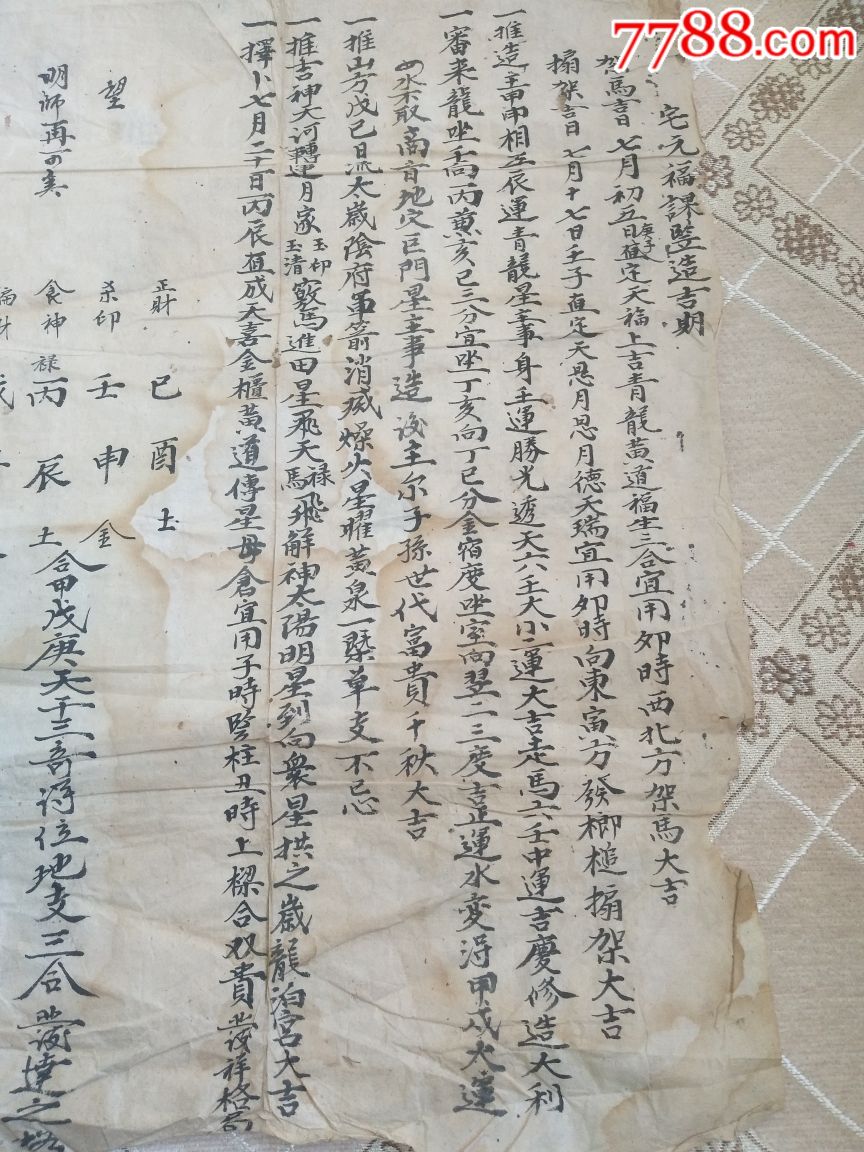 7788.com
宅元福課竪造吉期
架馬吉日 七月初五日庚子直定天福上吉青龍黄道福生三合宜用夘時西北方架馬大吉
搧架吉日 七月十七日壬子直定天恩月恩月德天瑞宜用夘時向東寅方發榔槌搧架大吉
一推造主甲申相 辰運青龍星主事身土運勝光透天六壬大小二運大吉走馬六壬中運吉慶修造大利
一審来龍坐壬向丙兼亥巳三分宜坐丁亥向丁巳分金宿度坐室向翌二三度吉正運水変得甲戌火運
水不取商音地定巨門星主事造 主尔子孫世代富貴千秋大吉
一推山方戊己日流太歳陰府軍箭消滅燥火星曜黄泉一槩单支不忌
一推吉神天河轉運月家玉印玉清竅馬進田星飛天禄馬飛解神太陽明星到向衆星拱之歳龍泊宮大吉
一擇卜七月二十一日丙辰直成天喜金櫃黄道傳星母倉宜用子時竪柱丑時上樑合双貴 祥格局
正財 己酉 土
杀印 壬申 金
食神 禄 丙辰 土
合甲戊庚天干三奇得位地支三合 達之
望
明師再